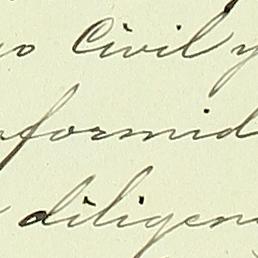 o Civil y
formid
diligen